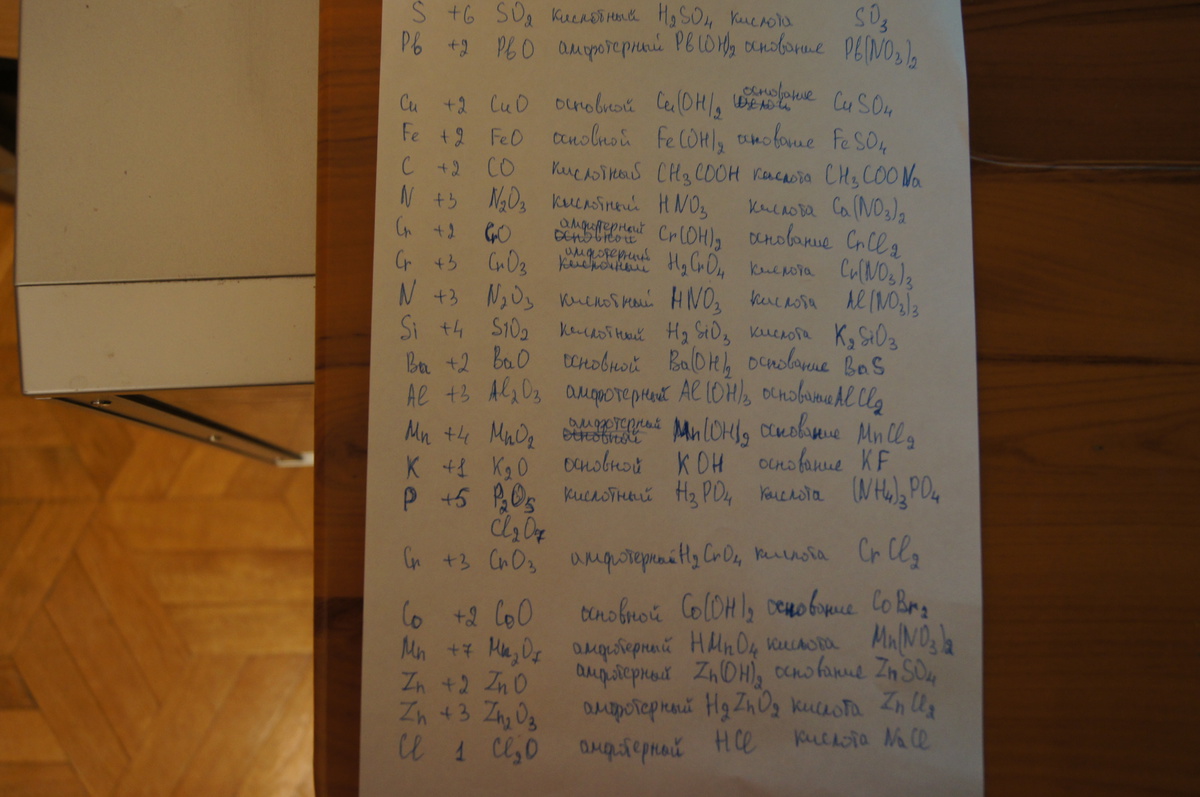 S +6 SO₂ кислотный H₂SO₄ кислота SO₃
Pb +2 PbO амфотерный Pb(OH)₂ основание Pb(NO₃)₂
основание
Cu +2 CuO основной Cu(OH)₂ CuSO₄
Fe +2 FeO основной Fe(OH)₂ основание FeSO₄
C +2 CO кислотный CH₃COOH кислота CH₃COONa
N +3 N₂O₃ кислотный HNO₃ кислота Ca(NO₃)₂
амфотерный
Cr +2 CrO основной Cr(OH)₂ основание CrCl₂
амфотерный
Cr +3 CrO₃ кислотный H₂CrO₄ кислота Cr(NO₃)₃
N +3 N₂O₃ кислотный HNO₃ кислота Al(NO₃)₃
Si +4 SiO₂ кислотный H₂SiO₃ кислота K₂SiO₃
Ba +2 BaO основной Ba(OH)₂ основание BaS
Al +3 Al₂O₃ амфотерный Al(OH)₃ основание AlCl₂
амфотерный
Mn +4 MnO₂ основной Mn(OH)₂ основание MnCl₂
K +1 K₂O основной KOH основание KF
P +5 P₂O₅ кислотный H₃PO₄ кислота (NH₄)₃PO₄
Cl₂O₇
Cr +3 CrO₃ амфотерный H₂CrO₄ кислота CrCl₂
Co +2 CoO основной Co(OH)₂ основание CoBr₂
Mn +7 Mn₂O₇ амфотерный HMnO₄ кислота Mn(NO₃)₂
Zn +2 ZnO амфотерный Zn(OH)₂ основание ZnSO₄
Zn +3 Zn₂O₃ амфотерный H₂ZnO₂ кислота ZnCl₂
Cl 1 Cl₂O амфотерный HCl кислота NaCl